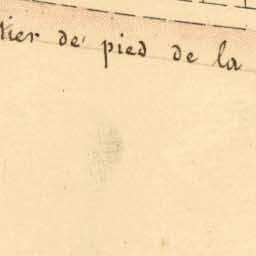 tier de pied de la